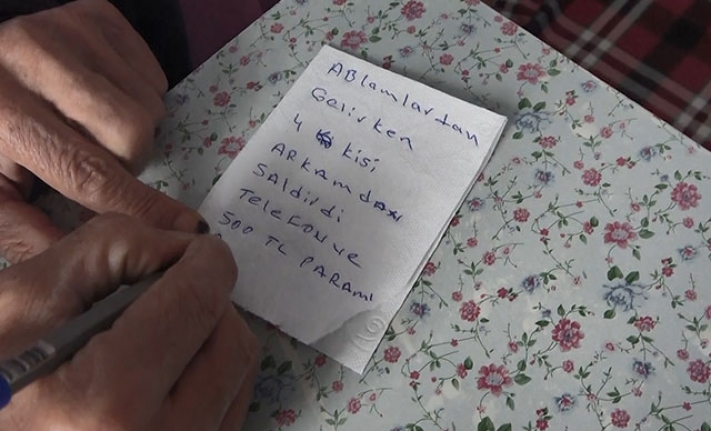 ABlamlardan
Gelirken
4 kisi
ARKAMdAN
SAldirdi
TeleFON ve
500 TL PARAMI